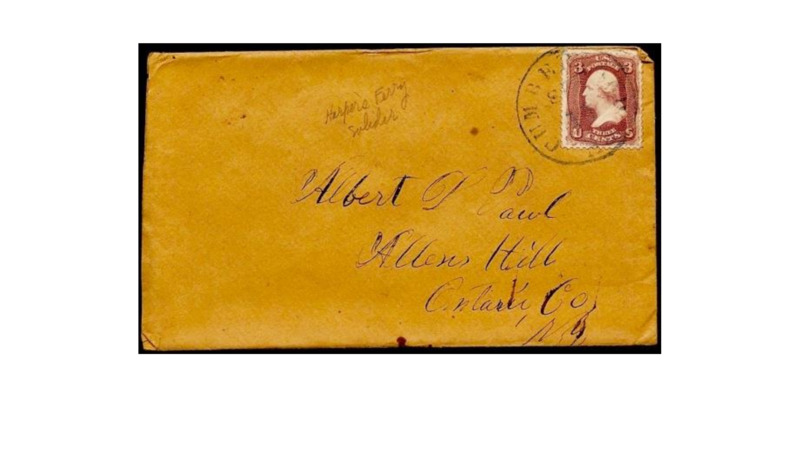 Harper's Ferry
Soldier
CUMBE
3 U.S. 3
POSTAGE
THREE
U CENTS S
Albert P Paul
Allens Hill
Ontario Co
N.Y.